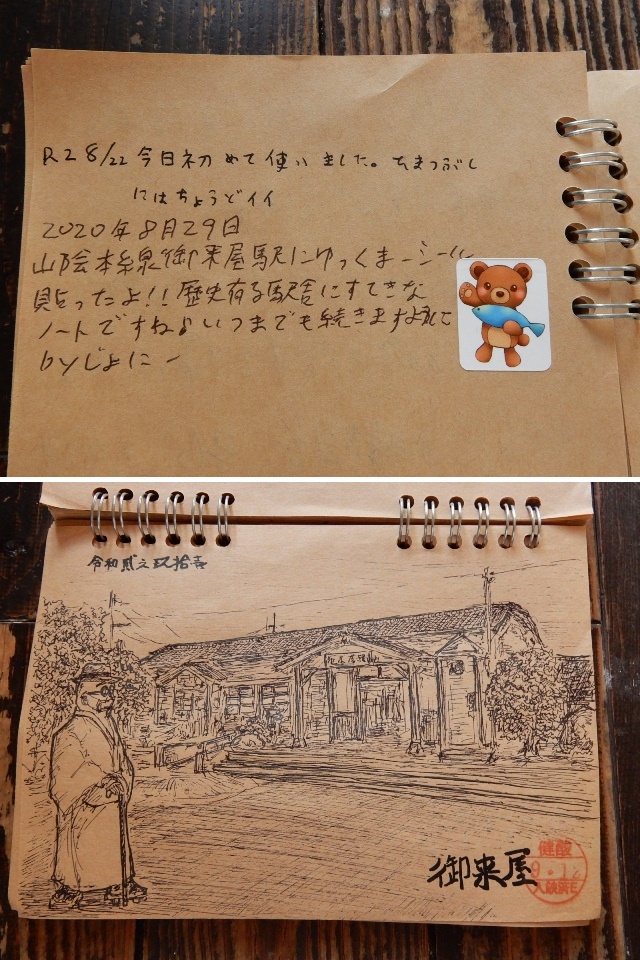 R2 8/22 今日初めて使いました。ひまつぶし
にはちょうどイイ
2020年8月29日
山陰本線御来屋駅にゆっくまーシール
貼ったよ!!歴史有る駅舎にすてきな
ノートですね♪いつまでも続きます様に
byじょにー
令和貳之玖拾壱
御来屋駅
御来屋
9.12